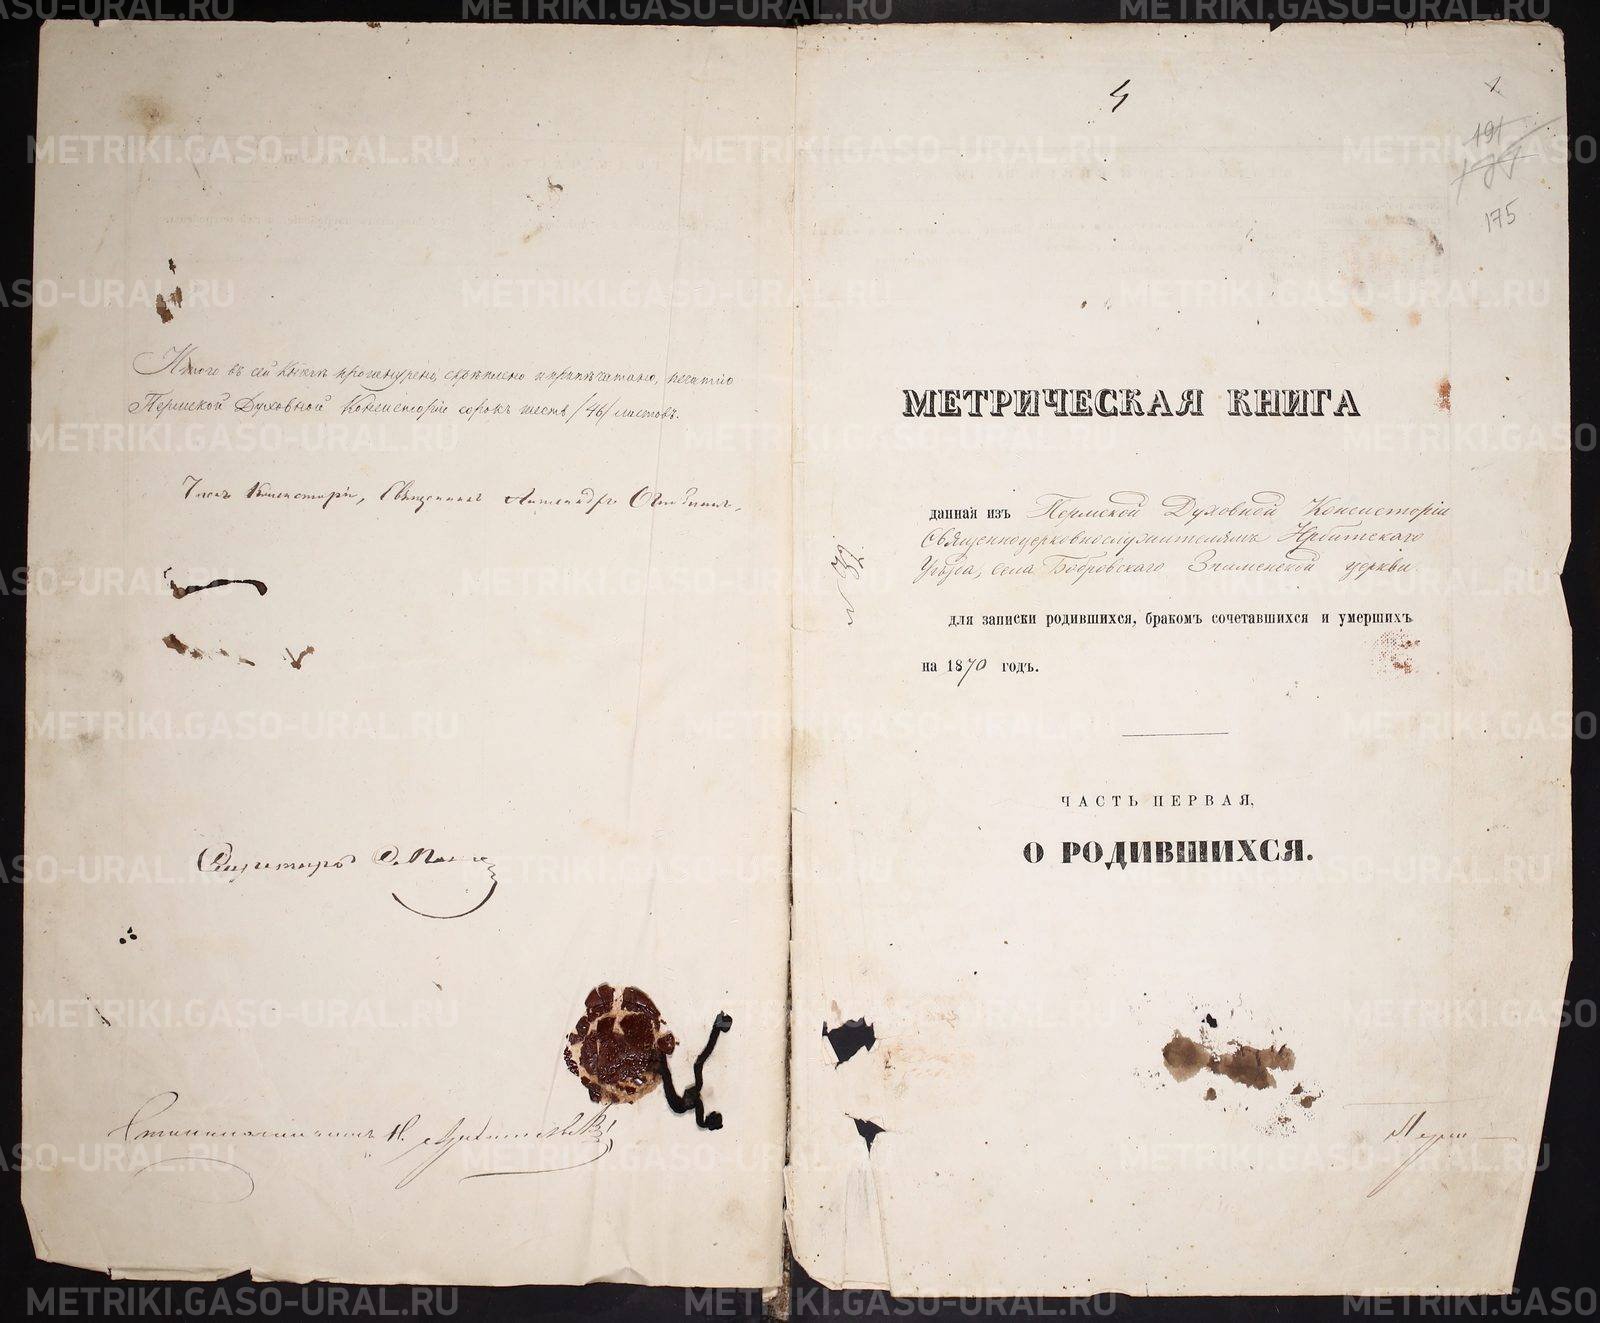 Итого въ сей книгѣ прошнурено, скрѣплено и припечатано, печатью
Пермской Духовной Консисторіи сорокъ шесть /46/ листовъ.
Членъ Консисторіи, Священникъ Александръ
Секретарь
Столоначальникъ Н.
4
1
191
175
МЕТРИЧЕСКАЯ КНИГА
данная изъ Пермской Духовной Консисторіи
Священноцерковнослужителямъ Ирбитскаго
Уѣзда, села Бобровскаго Знаменской церкви
для записки родившихся, бракомъ сочетавшихся и умершихъ
на 1870 годъ.
ЧАСТЬ ПЕРВАЯ,
О РОДИВШИХСЯ.
METRIKI.GASO-URAL.RU